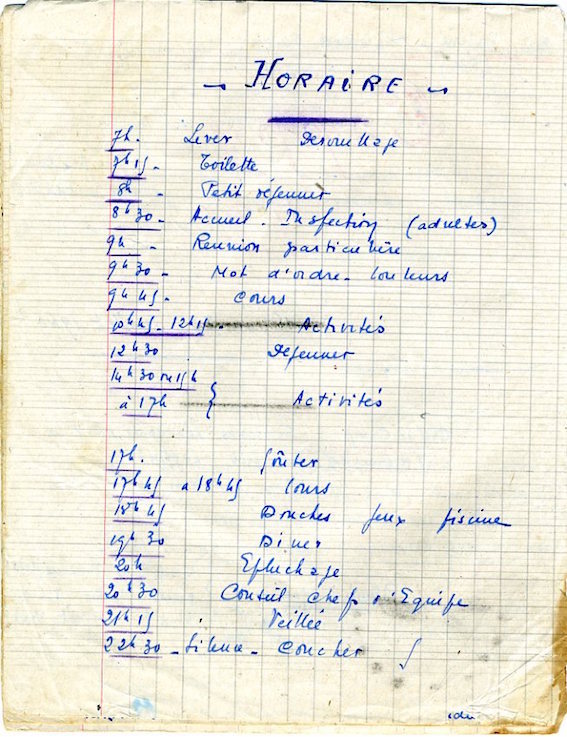 - HORAIRE -
7h. Lever Dérouillage
7h15 - Toilette
8h - Petit déjeuner
8h30 - Accueil - Inspection (adultes)
9h - Réunion particulière
9h30 - Mot d'ordre - Couleurs
9h45 - Cours
10h45 - 12h15 - Activités
12h30 Déjeuner
14h30 ou 15h
à 17h } Activités
17h. Goûter
17h45 à 18h45 Cours
18h45 Douches jeux piscine
19h30 Diner
20h Epluchage
20h30 Conseil Chefs d'Equipe
21h15 Veillée
22h30 - Silence - Coucher